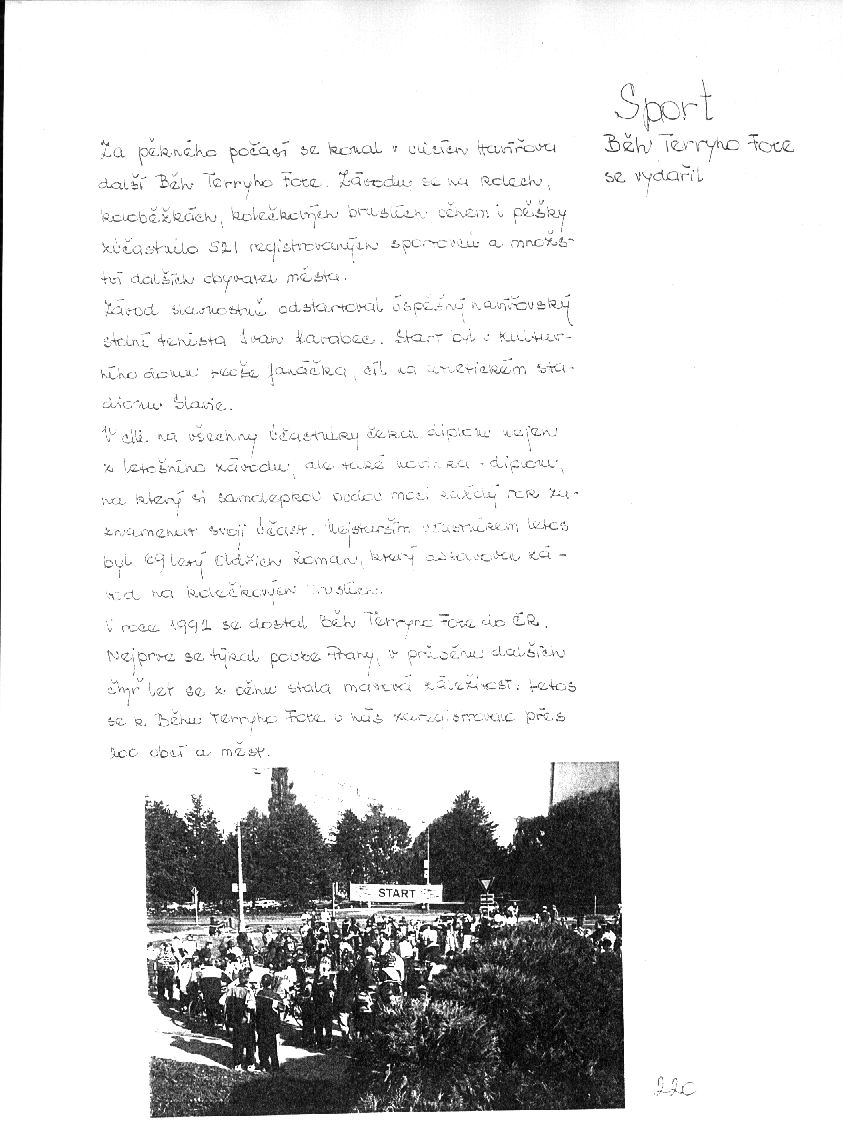 Sport
Běh Terryho Foxe
se vydařil
Za pěkného počasí se konal v ulicích Havířova
další Běh Terryho Foxe. Závodu se na kolech,
koloběžkách, kolečkových bruslích během i pěšky
zúčastnilo 521 registrovaných sportovců a množs-
tví dalších obyvatel města.
Závod slavnostně odstartoval úspěšný havířovský
stolní tenista Ivan Karabec. Start byl u Kultur-
ního domu Leoše Janáčka, cíl na atletickém sta-
dionu Slavie.
V cíli na všechny účastníky čekal diplom nejen
z letošního závodu, ale také novinka - diplom,
na který si samolepkou budou moci každý rok za-
znamenat svoji účast. Nejstarším účastníkem letos
byl 69letý Oldřich Roman, který absolvoval zá-
vod na kolečkových bruslích.
V roce 1992 se dostal Běh Terryho Foxe do ČR.
Nejprve se týkal pouze Prahy, v průběhu dalších
čtyř let se z běhu stala masová záležitost. Letos
se k Běhu Terryho Foxe u nás zaregistrovalo přes
200 obcí a měst.
START
220